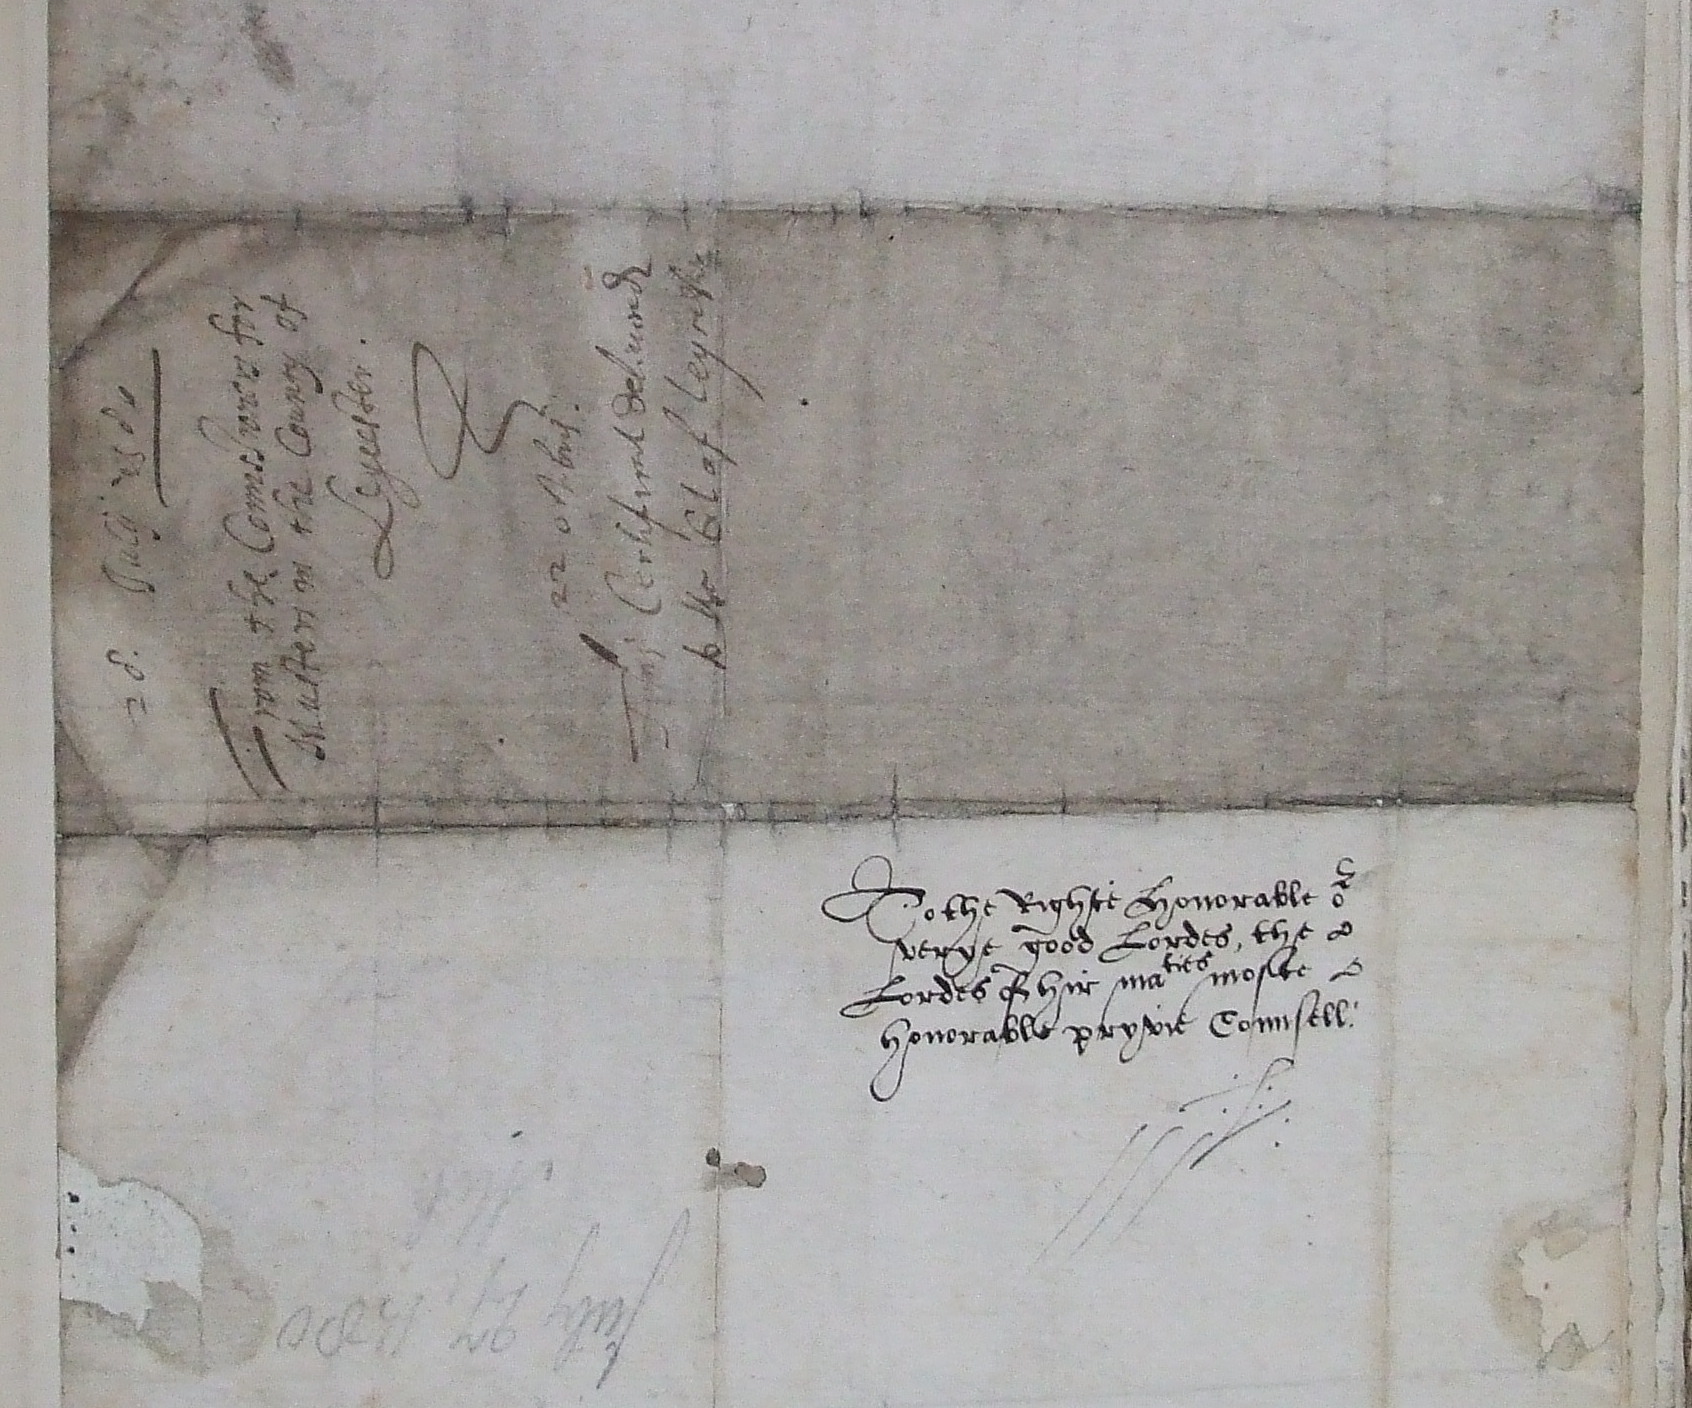 28. July 1580
From the Comissioners for
Musters in the County of
Leycester.
22 octobris.
Certificat
of Leycestr
To the Righte Honorable &
verye good Lordes, the
Lordes of hir maties moste
honorable pryvie Counsell:
July 27, 1580